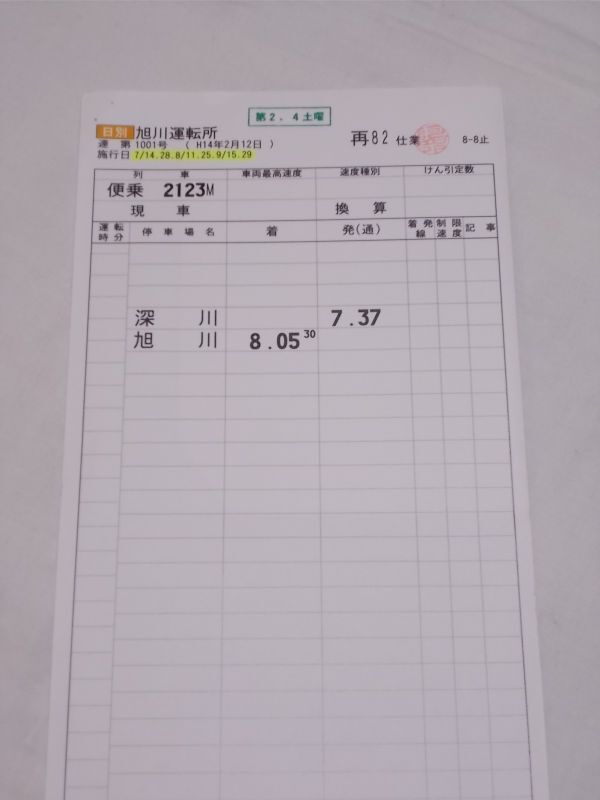 第2．4土曜
日別 旭川運転所 再82 仕業 8-8止
運 第1001号 （ H14年2月12日 ）
施行日 7/14.28.8/11.25.9/15.29
列 車 車両最高速度 速度種別 けん引定数
便乗 2123M
現 車 換 算
運転時分 停車場名 着 発(通) 着発線 制限速度 記事
深 川 7.37
旭 川 8.05 30